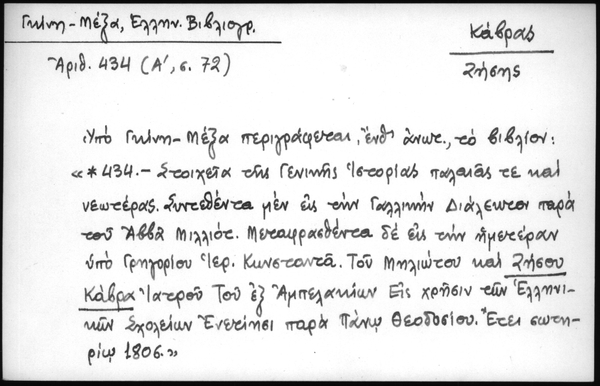 Γκίνη-Μέξα, Ἑλλην. Βιβλιογρ.
Κάβρας
Ἀριθ. 434 (Α', σ. 72)
Ζήσης
Ὑπό Γκίνη-Μέξα περιγράφεται, ἔνθ' ἀνωτ., τό βιβλίον:
«*434.- Στοιχεῖα τῆς Γενικῆς Ἱστορίας παλαιᾶς τε καί
νεωτέρας. Συντεθέντα μέν εἰς τήν Γαλλικήν Διάλεκτον παρά
τοῦ Ἀββᾶ Μιλλιότ. Μεταφρασθέντα δέ εἰς τήν ἡμετέραν
ὑπό Γρηγορίου Ἱερ. Κωνσταντᾶ. Τοῦ Μηλιώτου καί Ζήσου
Κάβρα Ἰατροῦ Τοῦ ἐξ Ἀμπελακίων Εἰς χρῆσιν τῶν Ἑλληνι-
κῶν Σχολείων Ἐνετίησι παρά Πάνῳ Θεοδοσίου. Ἔτει σωτη-
ρίῳ 1806.»